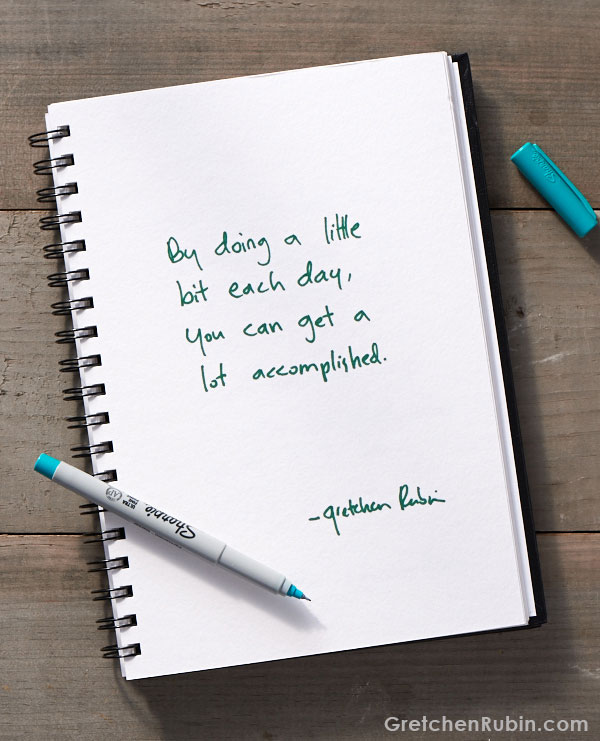 By doing a little
bit each day,
you can get a
lot accomplished.
-Gretchen Rubin
Sharpie
ULTRA
FINE
Sharpie
GretchenRubin.com